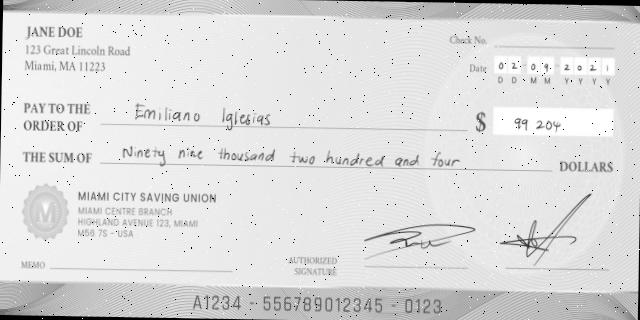 JANE DOE
123 Great Lincoln Road
Miami, MA 11223
Check No.
Date 02 09 2021
D D M M Y Y Y Y
PAY TO THE
ORDER OF Emiliano Iglesias
$ 99 204.
THE SUM OF Ninety nine thousand two hundred and four DOLLARS
M
MIAMI CITY SAVING UNION
MIAMI CENTRE BRANCH
HIGHLAND AVENUE 123, MIAMI
M56 7S - USA
MEMO
AUTHORIZED
SIGNATURE
A1234 - 556789012345 - 0123